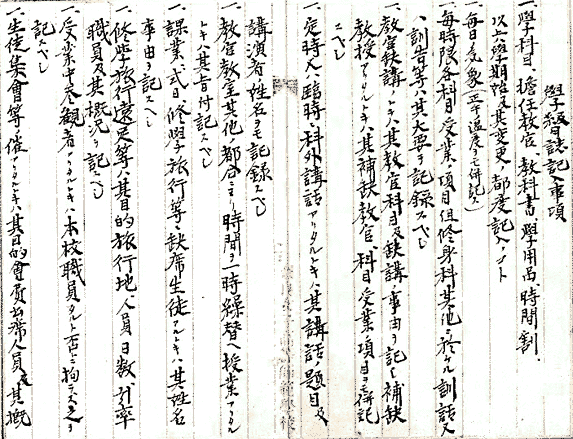 學級日誌記入事項
一、學科目、擔任教官、教科書、學用品、時間割、
以上ハ學期始及其変更ノ都度記入ノコト
一、毎日ノ気象(正午温度ヲモ併記ス)
一、毎時限各科目ノ受業ノ項目但修身科其他ニ於ケル訓話又
ハ訓告等ハ其大要ヲ記録スベシ
一、教官缺講ノトキハ其教官科目及缺講ノ事由ヲ記シ補缺
教授アリタルトキハ其補缺教官、科目受業項目ヲモ併記
スベシ
一、定時又ハ臨時ニ科外講話アリタルトキハ其講話ノ題目及
講演者姓名ヲモ記録スベシ
一、教官教室其他ノ都合ニヨリ時間ヲ一時繰替ヘ授業アリタル
トキハ其旨付記スベシ
一、課業、式日、修學旅行等ニ缺席生徒アルトキハ其姓名
事由ヲ記スベシ
一、修學旅行遠足等ハ其目的旅行地人員日数引率
職員及其概況ヲ記スベシ
一、受業中参観者アリタルトキハ本校職員タルト否トニ拘ラズ之ヲ
記スベシ
一、生徒集會等ノ催アリタルトキハ其目的會費出席人員及其概